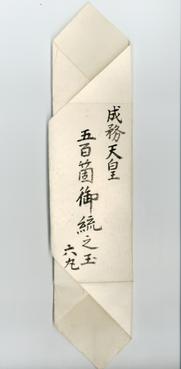 成務天皇
五百箇御統之玉
六九